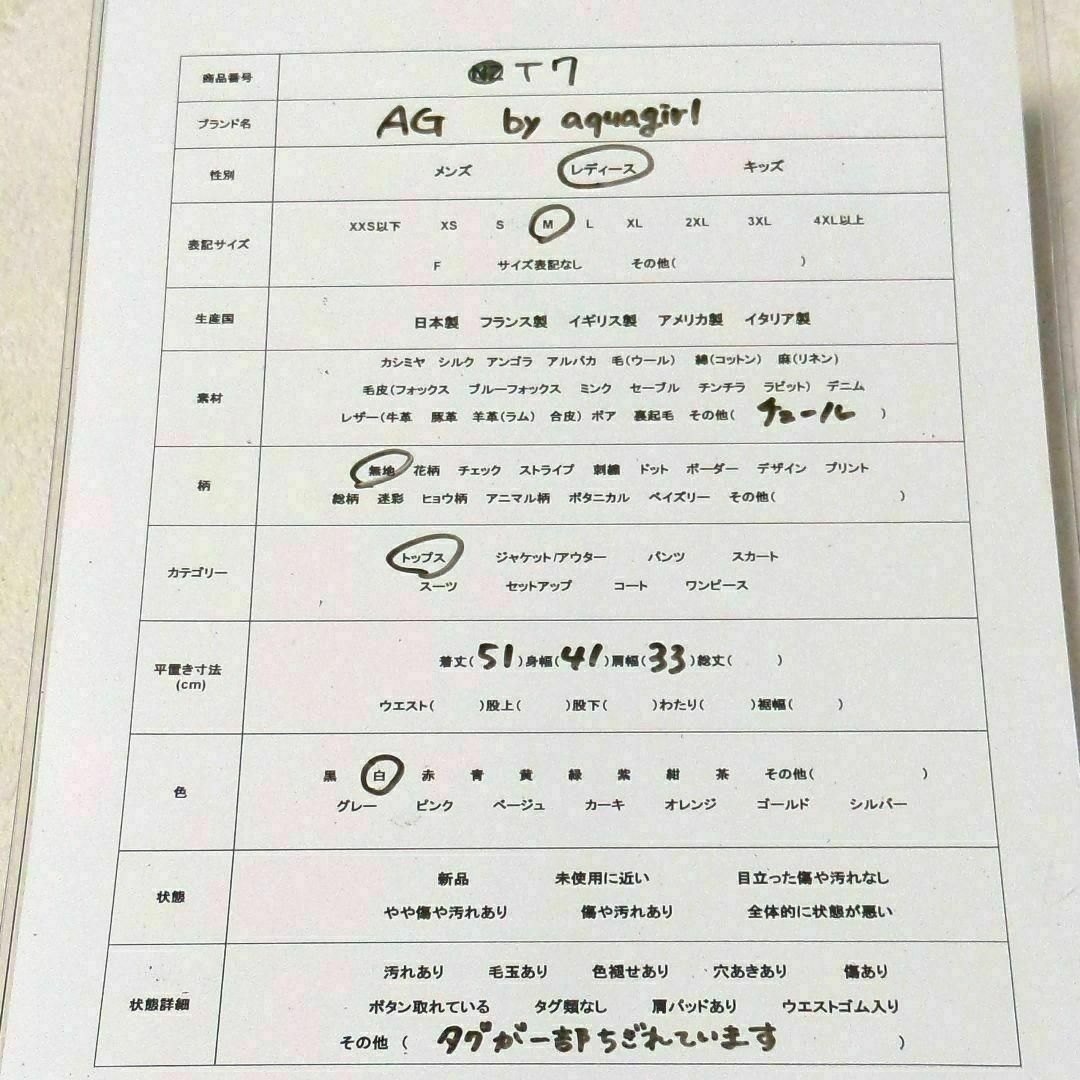 商品番号 T7
ブランド名 AG by aquagirl
性別 メンズ レディース キッズ
XXS以下 XS S M L XL 2XL 3XL 4XL以上
表記サイズ
F サイズ表記なし その他( )
生産国 日本製 フランス製 イギリス製 アメリカ製 イタリア製
カシミヤ シルク アンゴラ アルパカ 毛(ウール) 綿(コットン) 麻(リネン)
素材 毛皮(フォックス ブルーフォックス ミンク セーブル チンチラ ラビット) デニム
レザー(牛革 豚革 羊革(ラム) 合皮) ボア 裏起毛 その他( チュール )
柄 無地 花柄 チェック ストライプ 刺繍 ドット ボーダー デザイン プリント
総柄 迷彩 ヒョウ柄 アニマル柄 ボタニカル ペイズリー その他( )
カテゴリー トップス ジャケット/アウター パンツ スカート
スーツ セットアップ コート ワンピース
平置き寸法 着丈(51)身幅(41)肩幅(33)総丈( )
(cm)
ウエスト( )股上( )股下( )わたり( )裾幅( )
色 黒 白 赤 青 黄 緑 紫 紺 茶 その他( )
グレー ピンク ベージュ カーキ オレンジ ゴールド シルバー
状態 新品 未使用に近い 目立った傷や汚れなし
やや傷や汚れあり 傷や汚れあり 全体的に状態が悪い
汚れあり 毛玉あり 色褪せあり 穴あきあり 傷あり
状態詳細 ボタン取れている タグ類なし 肩パッドあり ウエストゴム入り
その他 ( タグが一部ちぎれています )